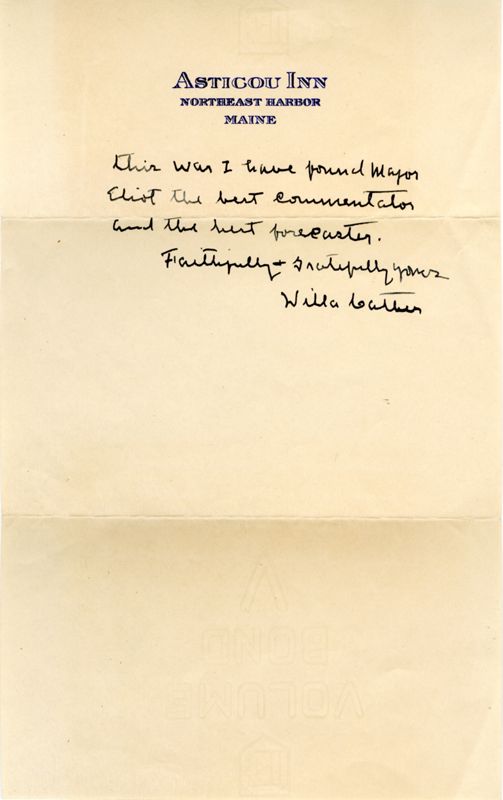 ASTICOU INN
NORTHEAST HARBOR
MAINE
this war I have found Major
Eliot the best commentator
and the best forecaster.
Faithfully & Gratefully yours
Willa Cather
V
BOND
VOLUME